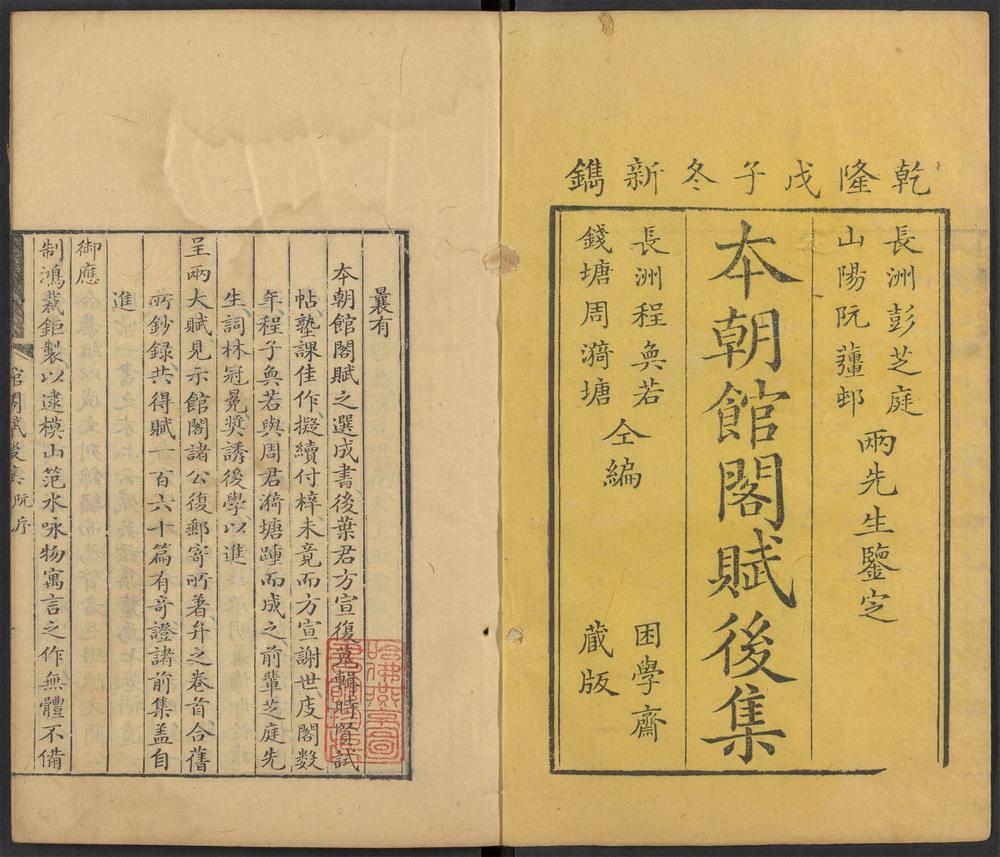 乾隆戊子冬新鐫
長洲彭芝庭
山陽阮蘁邨
兩先生鑒定
本朝館閣賦後集
長洲程奐若
錢塘周漪塘
仝編
困學齋
藏版
曩有
本朝館閣賦之選成書後葉君方宣復蒐輯時賢試
帖塾課佳作擬續付梓未竟而方宣謝世庋閣數
年程子奐若與周君漪塘踵而成之前輩芝庭先
生詞林冠冕奬誘後學以進
呈兩大賦見示館閣諸公復郵寄所著弁之卷首合舊
所鈔録共得賦一百六十篇有奇證諸前集盖自
進
御應
制鴻裁鉅製以逮模山笵水咏物寓言之作無體不備
館閣賦後集 阮序
哈佛燕京圖書館珍藏印